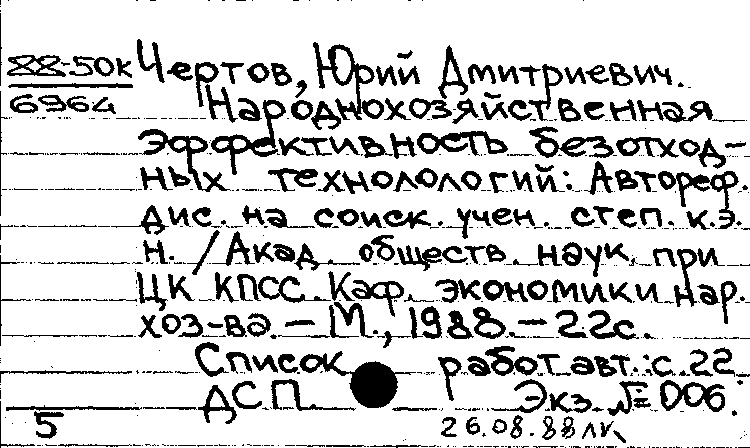 88-50к Чертов, Юрий Дмитриевич.
6964 Народнохозяйственная
эффективность безотход-
ных технолологий: Автореф.
дис. на соиск. учен. степ. к.э.
н. / Акад. обществ. наук при
ЦК КПСС. Каф. экономики нар.
хоз-ва. – М., 1988. – 22с.
Список работ авт.: с. 22.
ДСП. Экз. №006.
5 26.08.88